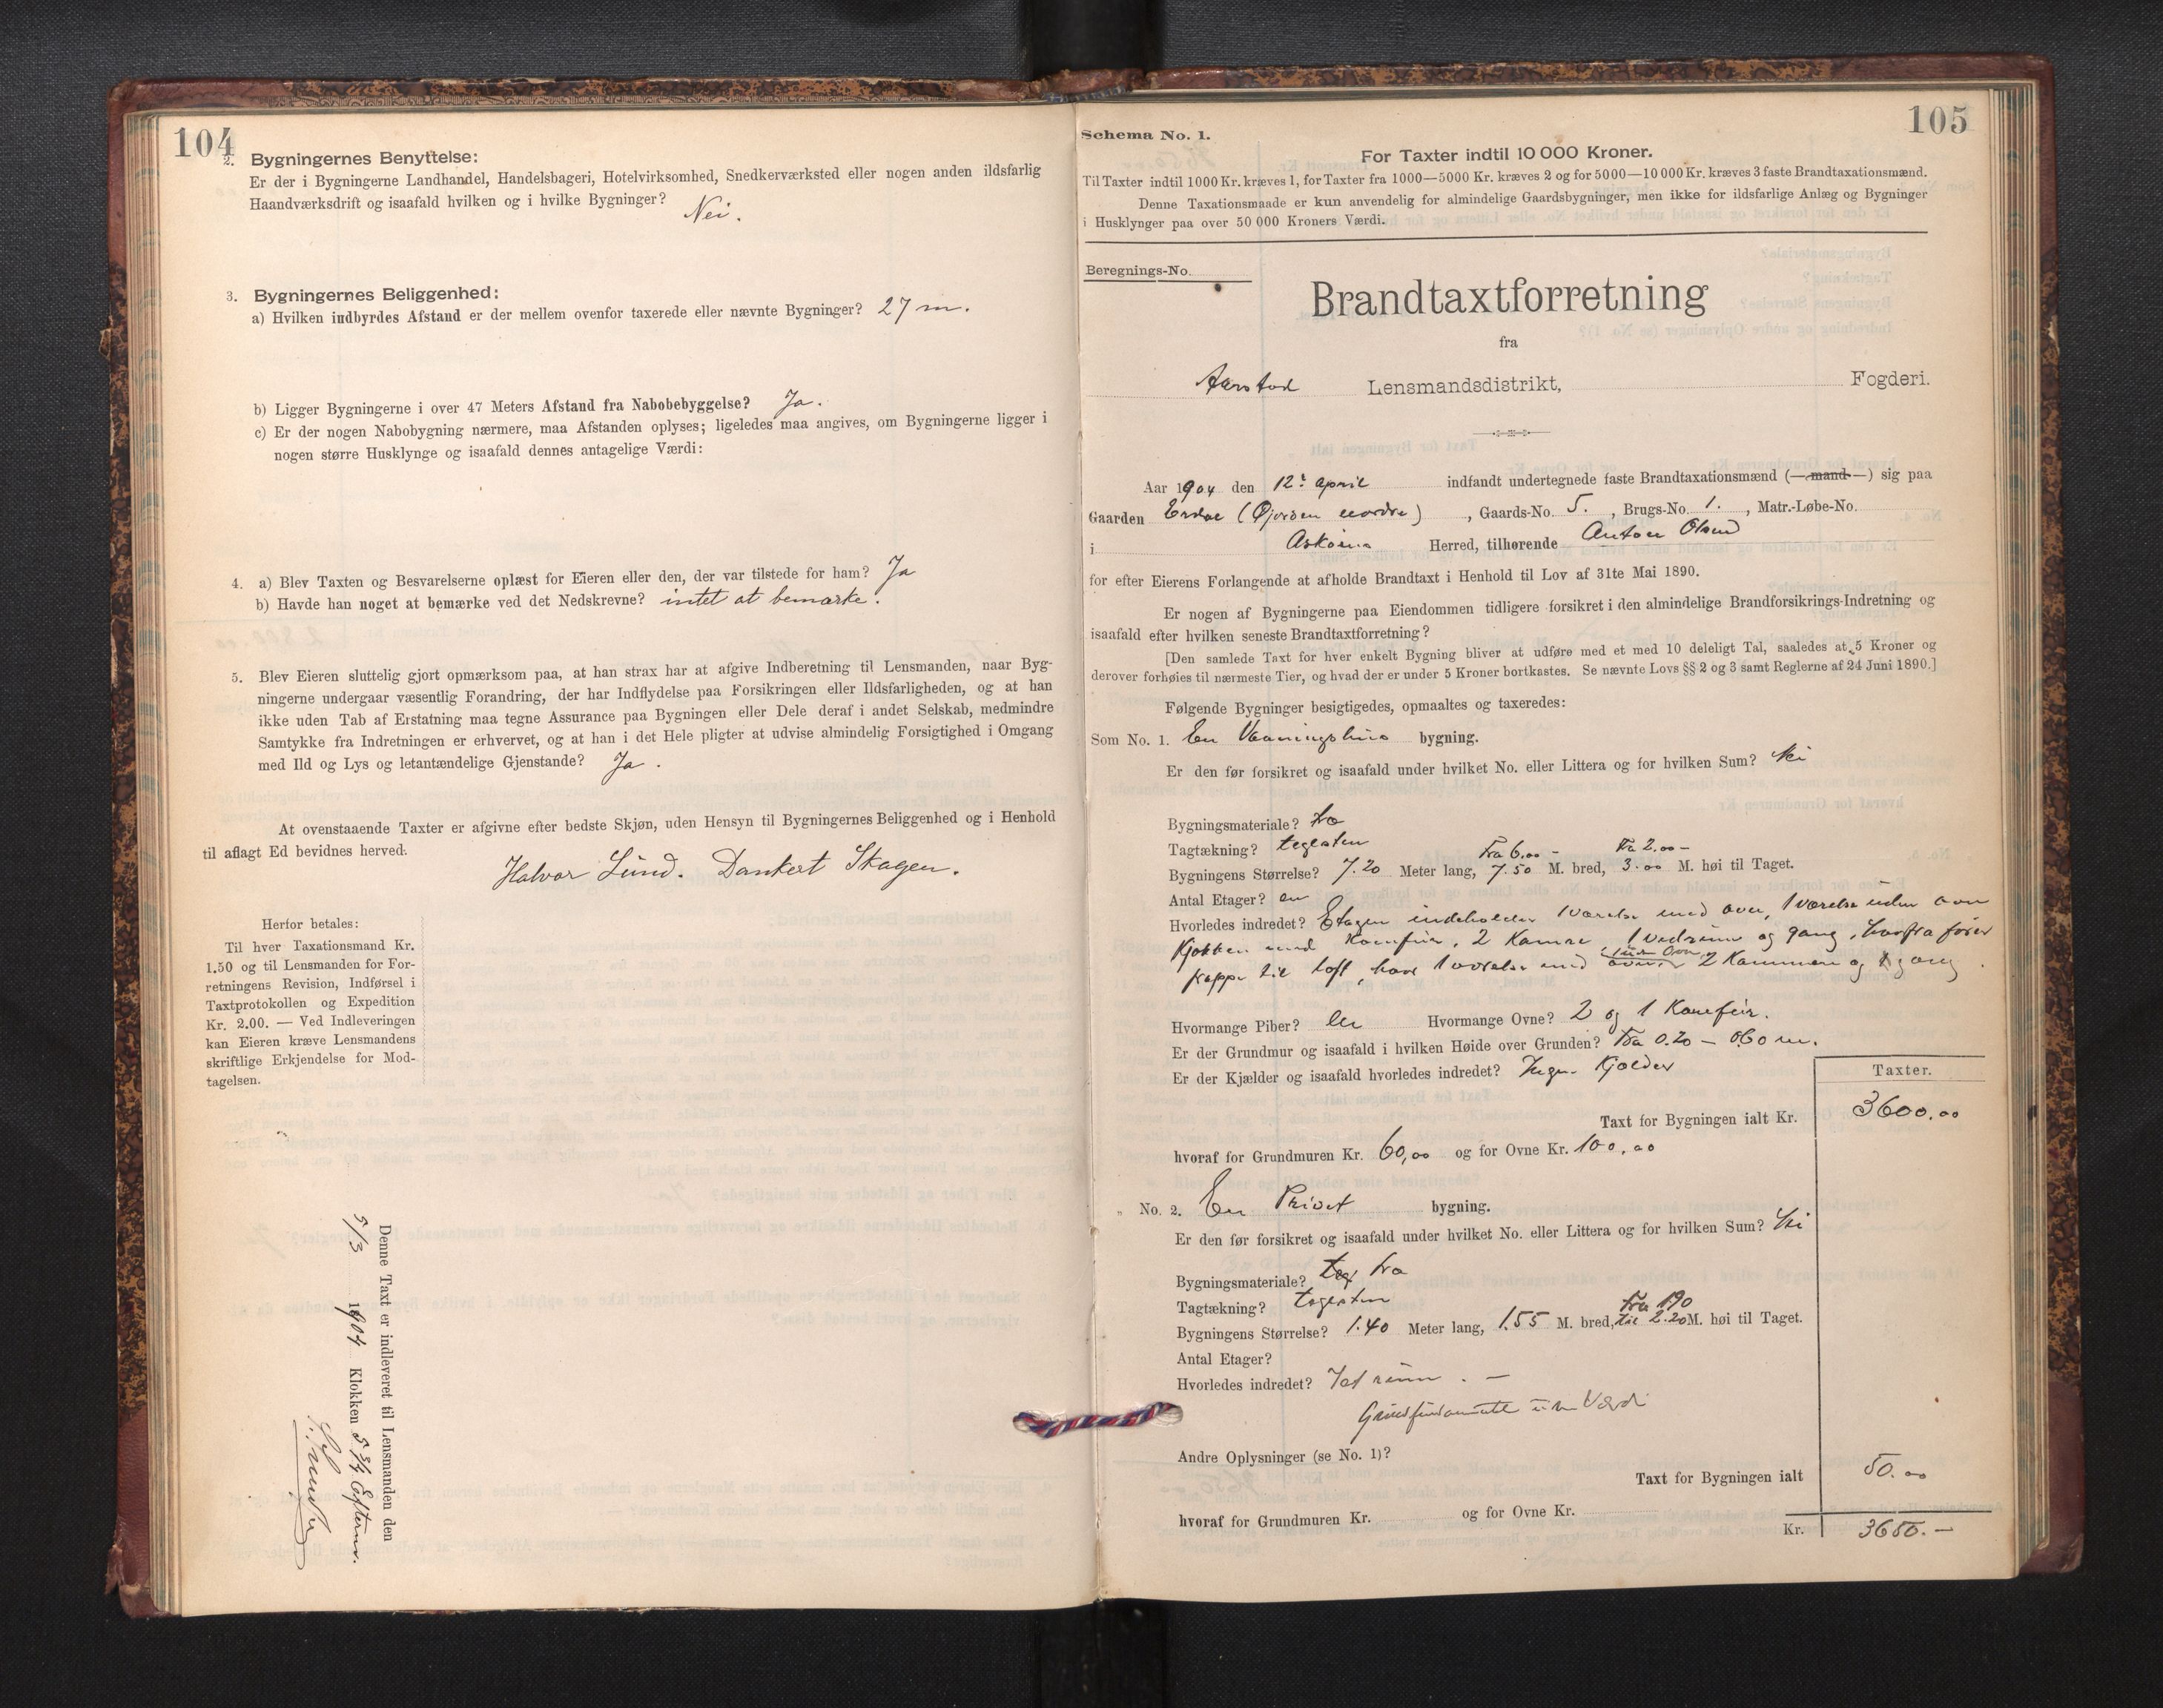 104
2. Bygningernes Benyttelse:
Er der i Bygningerne Landhandel, Handelsbageri, Hotelvirksomhed, Snedkerværksted eller nogen anden ildsfarlig
Haandværksdrift og isaafald hvilken og i hvilke Bygninger? Nei.
3. Bygningernes Beliggenhed:
a) Hvilken indbyrdes Afstand er der mellem ovenfor taxerede eller nævnte Bygninger? 27 m.
b) Ligger Bygningerne i over 47 Meters Afstand fra Nabobebyggelse? Ja.
c) Er der nogen Nabobygning nærmere, maa Afstanden oplyses; ligeledes maa angives, om Bygningerne ligger i
nogen større Husklynge og isaafald dennes antagelige Værdi:
4. a) Blev Taxten og Besvarelserne oplæst for Eieren eller den, der var tilstede for ham? Ja
b) Havde han noget at bemærke ved det Nedskrevne? intet at bemærke.
5. Blev Eieren sluttelig gjort opmærksom paa, at han strax har at afgive Indberetning til Lensmanden, naar Byg-
ningerne undergaar væsentlig Forandring, der har Indflydelse paa Forsikringen eller Ildsfarligheden, og at han
ikke uden Tab af Erstatning maa tegne Assurance paa Bygningen eller Dele deraf i andet Selskab, medmindre
Samtykke fra Indretningen er erhvervet, og at han i det Hele pligter at udvise almindelig Forsigtighed i Omgang
med Ild og Lys og letantændelige Gjenstande? Ja.
At ovenstaaende Taxter er afgivne efter bedste Skjøn, uden Hensyn til Bygningernes Beliggenhed og i Henhold
til aflagt Ed bevidnes herved.
Halvor Lund. Dankert Skagen.
Herfor betales:
Til hver Taxationsmand Kr.
1.50 og til Lensmanden for For-
retningens Revision, Indførsel i
Taxtprotokollen og Expedition
Kr. 2.00. — Ved Indleveringen
kan Eieren kræve Lensmandens
skriftlige Erkjendelse for Mod-
tagelsen.
Denne Taxt er indleveret til Lensmanden den
5/3 1904 Klokken 5 3/4 Efterm.
105
Schema No. 1.
For Taxter indtil 10 000 Kroner.
Til Taxter indtil 1000 Kr. kræves 1, for Taxter fra 1000—5000 Kr. kræves 2 og for 5000—10 000 Kr. kræves 3 faste Brandtaxationsmænd.
Denne Taxationsmaade er kun anvendelig for almindelige Gaardsbygninger, men ikke for ildsfarlige Anlæg og Bygninger
i Husklynger paa over 50 000 Kroners Værdi.
Beregnings-No.
Brandtaxtforretning
fra
Aarstad Lensmandsdistrikt, Fogderi.
Aar 1904 den 12t April indfandt undertegnede faste Brandtaxationsmænd (—mand—) sig paa
Gaarden Erdal (Øjorden nordre), Gaards-No. 5., Brugs-No. 1., Matr.-Løbe-No.
i Askøens Herred, tilhørende Anton Olsen
for efter Eierens Forlangende at afholde Brandtaxt i Henhold til Lov af 31te Mai 1890.
Er nogen af Bygningerne paa Eiendommen tidligere forsikret i den almindelige Brandforsikrings-Indretning og
isaafald efter hvilken seneste Brandtaxtforretning?
[Den samlede Taxt for hver enkelt Bygning bliver at udføre med et med 10 deleligt Tal, saaledes at 5 Kroner og
derover forhøies til nærmeste Tier, og hvad der er under 5 Kroner bortkastes. Se nævnte Lovs §§ 2 og 3 samt Reglerne af 24 Juni 1890.]
Følgende Bygninger besigtigedes, opmaaltes og taxeredes:
Som No. 1. En Vaaningshus bygning.
Er den før forsikret og isaafald under hvilket No. eller Littera og for hvilken Sum? Nei
Bygningsmateriale? træ
Tagtækning? teglsten
fra 6.00 - fra 2.00 -
Bygningens Størrelse? 7.20 Meter lang, 7.50 M. bred, 3.00 M. høi til Taget.
Antal Etager? en
Hvorledes indredet? Etagen indeholder 1 værelse med ovn, 1 værelse uden ovn
Kjøkken med Komfur, 2 Kamre, 1 vedrum og gang, hvorfra fører
trappe til loft, hvor 1 værelse med ovn, 2 Kammere og 1 gang.
uden Ovn
Hvormange Piber? En Hvormange Ovne? 2 og 1 Komfur.
Er der Grundmur og isaafald i hvilken Høide over Grunden? fra 0.20 – 0.60 m.
Er der Kjælder og isaafald hvorledes indredet? Ingen Kjælder
Taxter.
Taxt for Bygningen ialt Kr. 3600.00
hvoraf for Grundmuren Kr. 60,00 og for Ovne Kr. 100,00
„ No. 2. En Privet bygning.
Er den før forsikret og isaafald under hvilket No. eller Littera og for hvilken Sum? Nei
Bygningsmateriale? teg træ
Tagtækning? teglsten
fra 1.90
Bygningens Størrelse? 1.40 Meter lang, 1.55 M. bred, til 2.20 M. høi til Taget.
Antal Etager?
Hvorledes indredet? 1 et rum. —
Grundfundamentet uden Værdi
Andre Oplysninger (se No. 1)?
Taxt for Bygningen ialt 50.00
hvoraf for Grundmuren Kr. og for Ovne Kr.
Kr. 3650.—